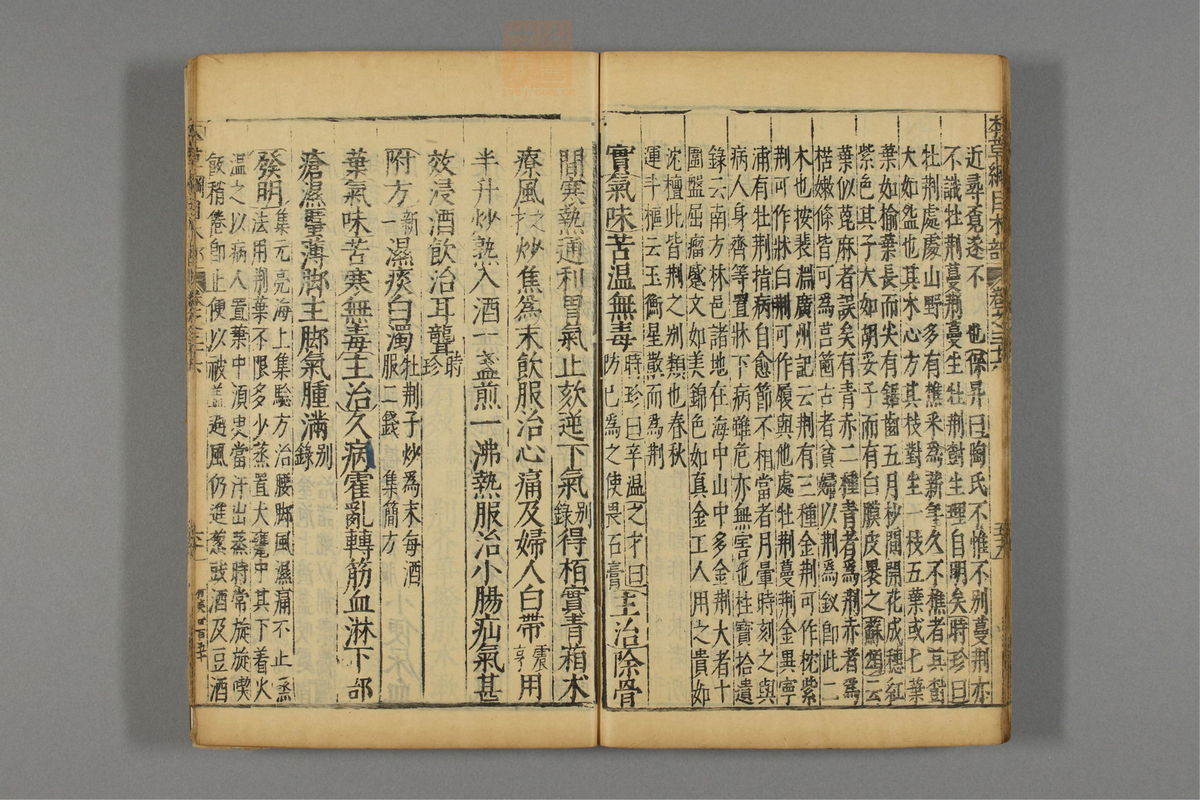 近尋覓遂不也保昇曰陶氏不惟不別蔓荆亦
不識牡荆蔓荆蔓生牡荆對生理自明矣時珍曰
牡荆處處山野多有樵采爲薪年久不樵者其對
大如盌也其木心方其枝對生一枝五葉或七葉
葉如榆葉長而尖有鋸齒五月杪間開花成穗紅
紫色其子大如胡荽子而有白膜皮裹之蘇頌云
葉似蓖麻者誤矣有青赤二種青者爲荆赤者爲
楛嫩條皆可爲莒䈱古者貧婦以荆爲釵即此二
木也按裴淵廣州記云荆有三種金荆可作枕紫
荆可作牀白荆可作履與他處牡荆蔓荆全異寧
浦有牡荆指病自愈節不相當者月暈時刻之與
病人身齊等置牀下病雖危亦無害也杜寶拾遺
錄云南方林邑諸地在海中山中多金荆大者十
圍盤屈瘤蹙文如美錦色如真金工人用之貴如
沈檀此皆荆之別類也春秋
運斗樞云玉衡星散而爲荆
實氣味苦温無毒時珍曰辛温之才曰
防己爲之使畏石膏主治除骨
間寒熱通利胃氣止欬逆下氣別
錄得栢實青葙术
療風之
才炒焦爲末飲服治心痛及婦人白帶震
亨用
半升炒熟入酒一盞煎一沸熱服治小腸疝氣甚
效浸酒飲治耳聾時
珍
附方新
一濕痰白濁牡荆子炒爲末每酒
服二錢 集簡方
葉氣味苦寒無毒主治久病霍亂轉筋血淋下部
瘡濕䘌薄脚主脚氣腫滿別
錄
發明集元亮海上集驗方治腰脚風濕痛不止蒸
法用荆葉不限多少蒸置大甕中其下着火
温之以病人置葉中須臾當汗出蒸時常旋旋喫
飯稍倦即止便以被蓋避風仍進葱豉酒及豆酒